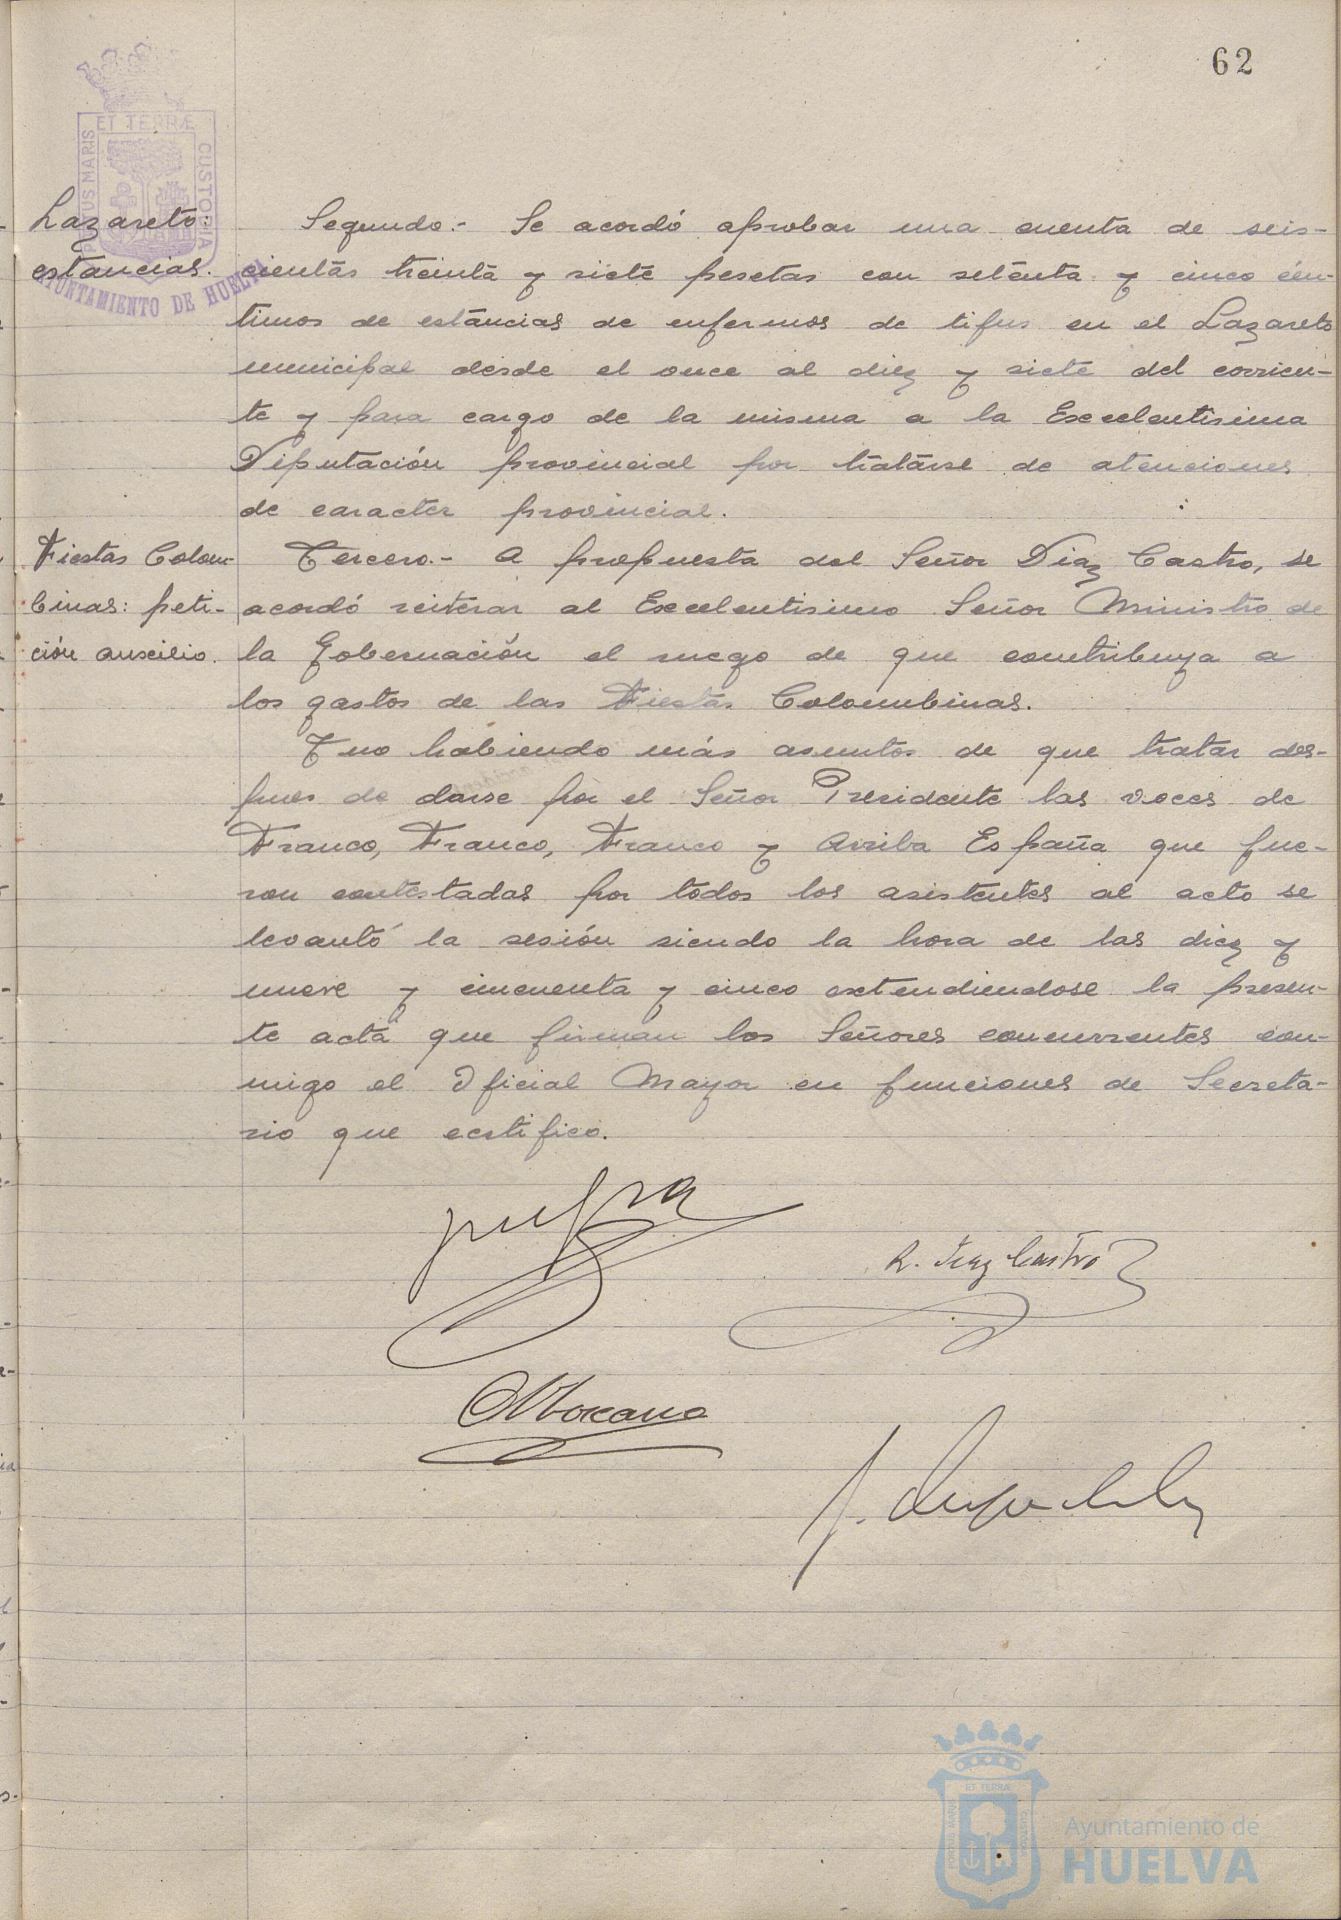 62
ET TERRÆ
PORTUS MARIS
CUSTODIA
AYUNTAMIENTO DE HUELVA
Lazareto:
estancias.
Segundo.- Se acordó aprobar una cuenta de seis-
cientas treinta y siete pesetas con setenta y cinco cén-
timos de estancias de enfermos de tifus en el Lazareto
municipal desde el once al diez y siete del corrien-
te y para cargo de la misma a la Excelentisima
Diputación provincial por tratarse de atenciones
de caracter provincial.
Fiestas Colom-
binas: peti-
ción auxilio.
Tercero.- A propuesta del Señor Diaz Castro, se
acordó reiterar al Excelentisimo Señor Ministro de
la Gobernación el ruego de que contribuya a
los gastos de las Fiestas Colombinas.
Y no habiendo más asuntos de que tratar des-
pues de darse por el Señor Presidente las voces de
Franco, Franco, Franco y Arriba España que fue-
ron contestadas por todos los asistentes al acto se
levantó la sesión siendo la hora de las diez y
nueve y cincuenta y cinco extendiendose la presen-
te acta que firman los Señores concurrentes con-
migo el Oficial Mayor en funciones de Secreta-
rio que certifico.
R. Diaz Castro
ET TERRÆ
Ayuntamiento de
HUELVA